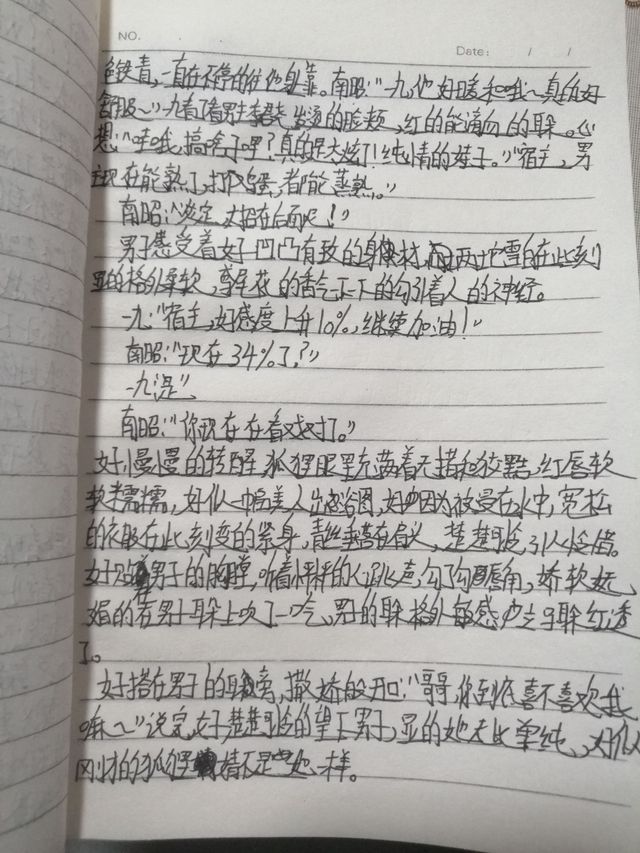 NO.
Date: / /
色铁青，一直在不停的往他身靠。南昭：“一九，他好暖和哦～真的好
舒服～”一九看了看男主李君尧发烫的脸颊，红的能滴血的耳朵。心
想：“哇哦，搞啥子哩？真的是太炫了！纯情的娃子。”“宿主，男
主现在能熟了，打鸡蛋，都能蒸熟。”
南昭：“淡定，大招在后面呢！”
男子感受着女子凹凸有致的身材，而两片雪白在此刻
显的格外柔软，鸢尾花的香气一下一下的勾引着人的神经。
一九：“宿主，好感度上升10%，继续加油！”
南昭：“现在34%了？”
一九：“是”
南昭：“你现在在看戏对了。”
女子慢慢的转醒，狐狸眼里充满着无措和狡黠，红唇软
软糯糯，好似一幅美人出浴图，如因为被浸在水中，宽松
的衣服在此刻变的紧身，青丝垂搭在肩头，楚楚可怜，引人怜惜。
女子贴着男子的胸膛，听着怦怦的心跳声，勾了勾嘴角，娇软妩
媚的看男子耳朵上吹了一口气，男子的耳朵格外敏感，立马耳朵红透
了。
女子搭在男子的耳离，撒娇般开口：“哥哥，你到底喜不喜欢我
嘛～”说完，女子楚楚可怜的望下男子，显的她如此单纯，好似
刚才的狐狸精不是她一样。